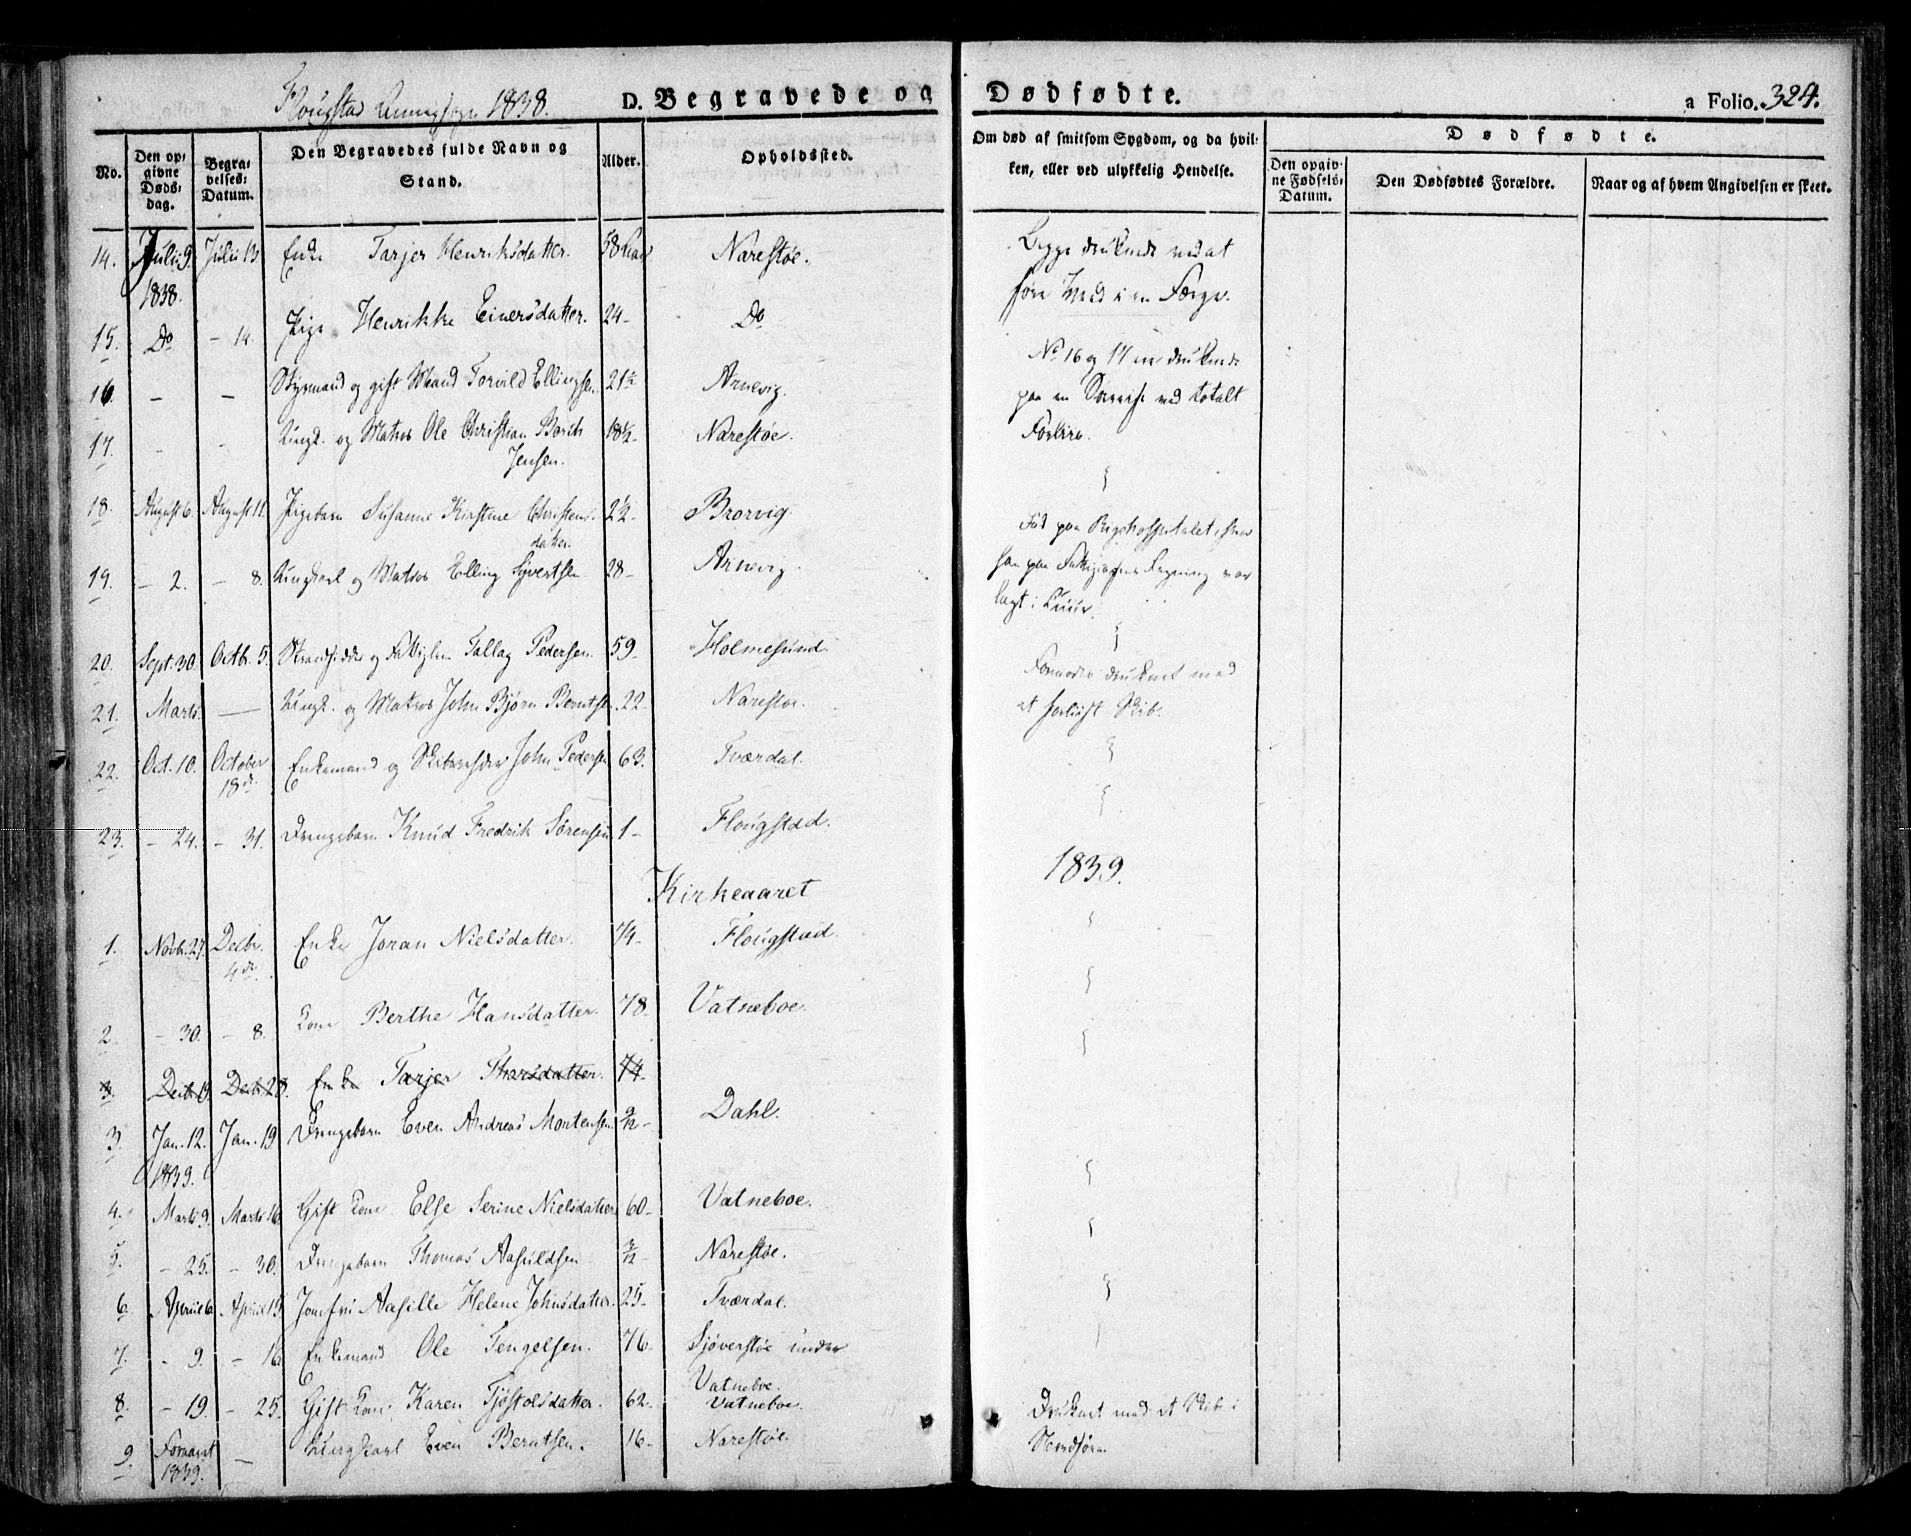 Flougstad 1838. D. Begravede og Dødfødte. a Folio. 324.
No. Den opgivne Døds-dag. Begravelses-Datum. Den Begravedes fulde Navn og Stand. Alder. Opholdssted. Om død af smitsom Sygdom, og da hvilken, eller ved ulykkelig Hendelse. Dødfødte.
Den opgivne Fødsels-Datum. Den Dødfødtes Forældre. Naar og af hvem Angivelsen er skeet.
14. Juli 9. 1838. Juli 13 Enke Tarjer Henriksdatter. 58 Narestøe. Begge druknede ved at
føre i en Færge.
15. Do - 14. Pige Henrikke Einersdatter. 24- Do
16. - - Styrmand og gift Mand Torvild Ellingsen. 21½ Arnevig. No 16 og 17 ere druknede
paa en med totalt
17. - - Ungk. og Matros Ole Christian Borch Jensen. 18½- Narestøe. Forliis.
18. August 6. August 11. Pigebarn Susanne Kirstine Christensdatter. 2½- Brorvig.
19. - 2. - 8. Ungkarl og Matros Elling Syvertsen 28- Arnevig. paa Rigshospitalet, hvor
han paa Regning var
lagt i Kuur.
20. Sept. 30. Octbr. 5. Strandsidder og Fattiglem Tallag Pedersen. 59- Holmesund.
21. Marts. — Ungk. og Matros John Bjørn Berntsen. 22- Narestøe. Formodes druknet med
et forliist Skib.
22. Oct. 10. October 18de Enkemand og Skibsreder John Pedersen 63. Tværdal.
23. - 24. - 31. Drengebarn Knud Fredrik Sørensen 1- Flougstad.
Kirkeaaret 1839.
1. Novbr. 27. Decbr. 4de Enke Joran Nielsdatter. 74- Flougstad.
2. - 30. - 8. Kone Berthe Hansdatter. 78. Vatneboe.
3. Decb. 19. Decb. 28. Enke Tarjer Tharsdatter. 74-
3. Jan. 12. 1839. Jan. 19 Drengebarn Even Andreas Mortensen 9/12- Dahl.
4. Marts 9. Marts 16. Gift Kone Else Serine Nielsdatter 60- Vatneboe.
5. - 25. - 30. Drengebarn Thomas Aasuldsen 3/12- Narestøe.
6. April 6. April 15 Jomfru Aasille Helene Johnsdatter. 25- Tværdal.
7. - 9. - 16 Enkemand Ole Tengelsen. 76- Sjøverstøe under
Vatneboe.
8. - 19. - 25. Gift Kone Karen Tjøstolsdatter. 62- Vatneboe.
9. Foraaret 1839. — Ungkarl Even Berntsen. 16- Narestøe. Druknet med et Skib i
Nordsøen.